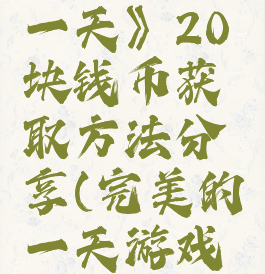 一天》20
块钱币获
取方法分
享(完美的
一天游戏